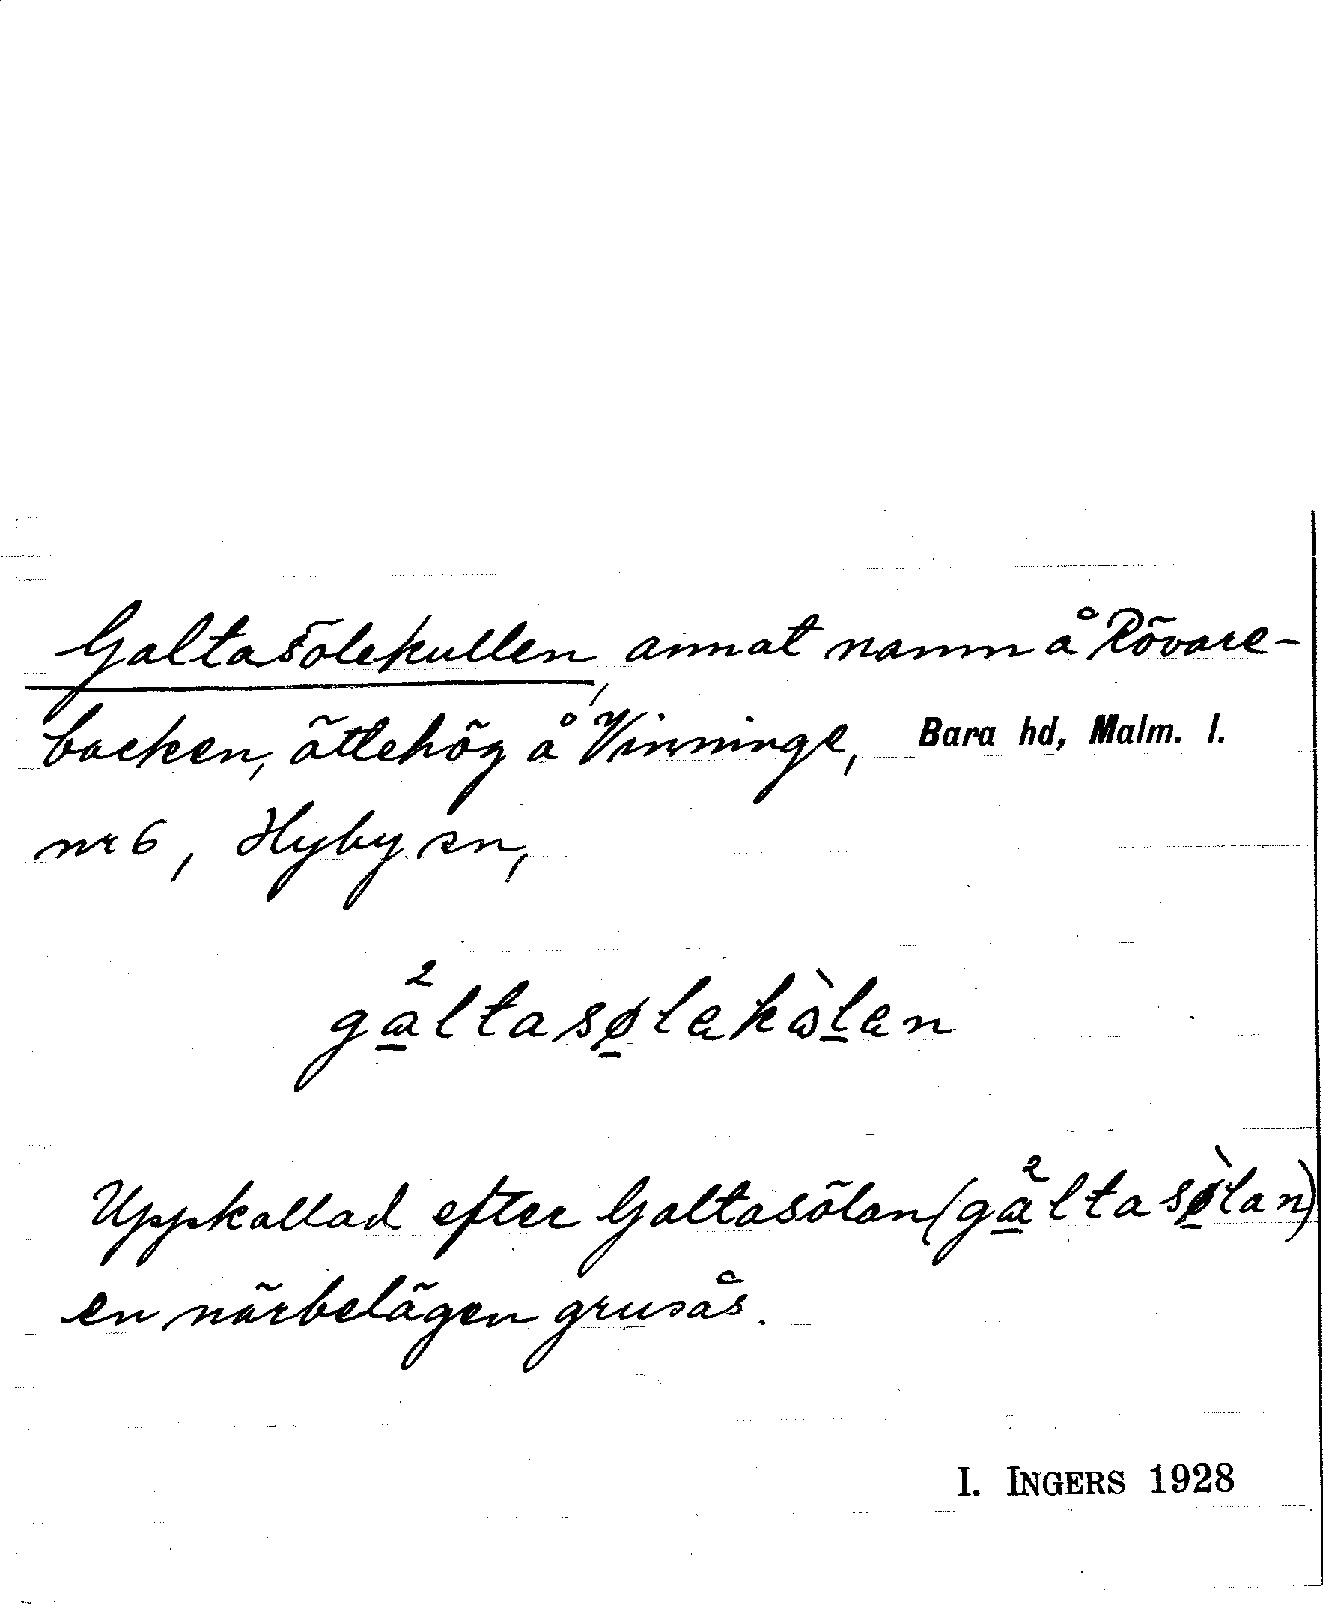 Galtasölekullen, annat namn å Rövare-
backen, ättehög å Vinninge, Bara hd, Malm. l.
nr 6, Hyby sn,
ga²ltasølekòlen
Uppkallad efter Galtasölan (ga²ltasø̀lan)
en närbelägen grusås.
I. INGERS 1928